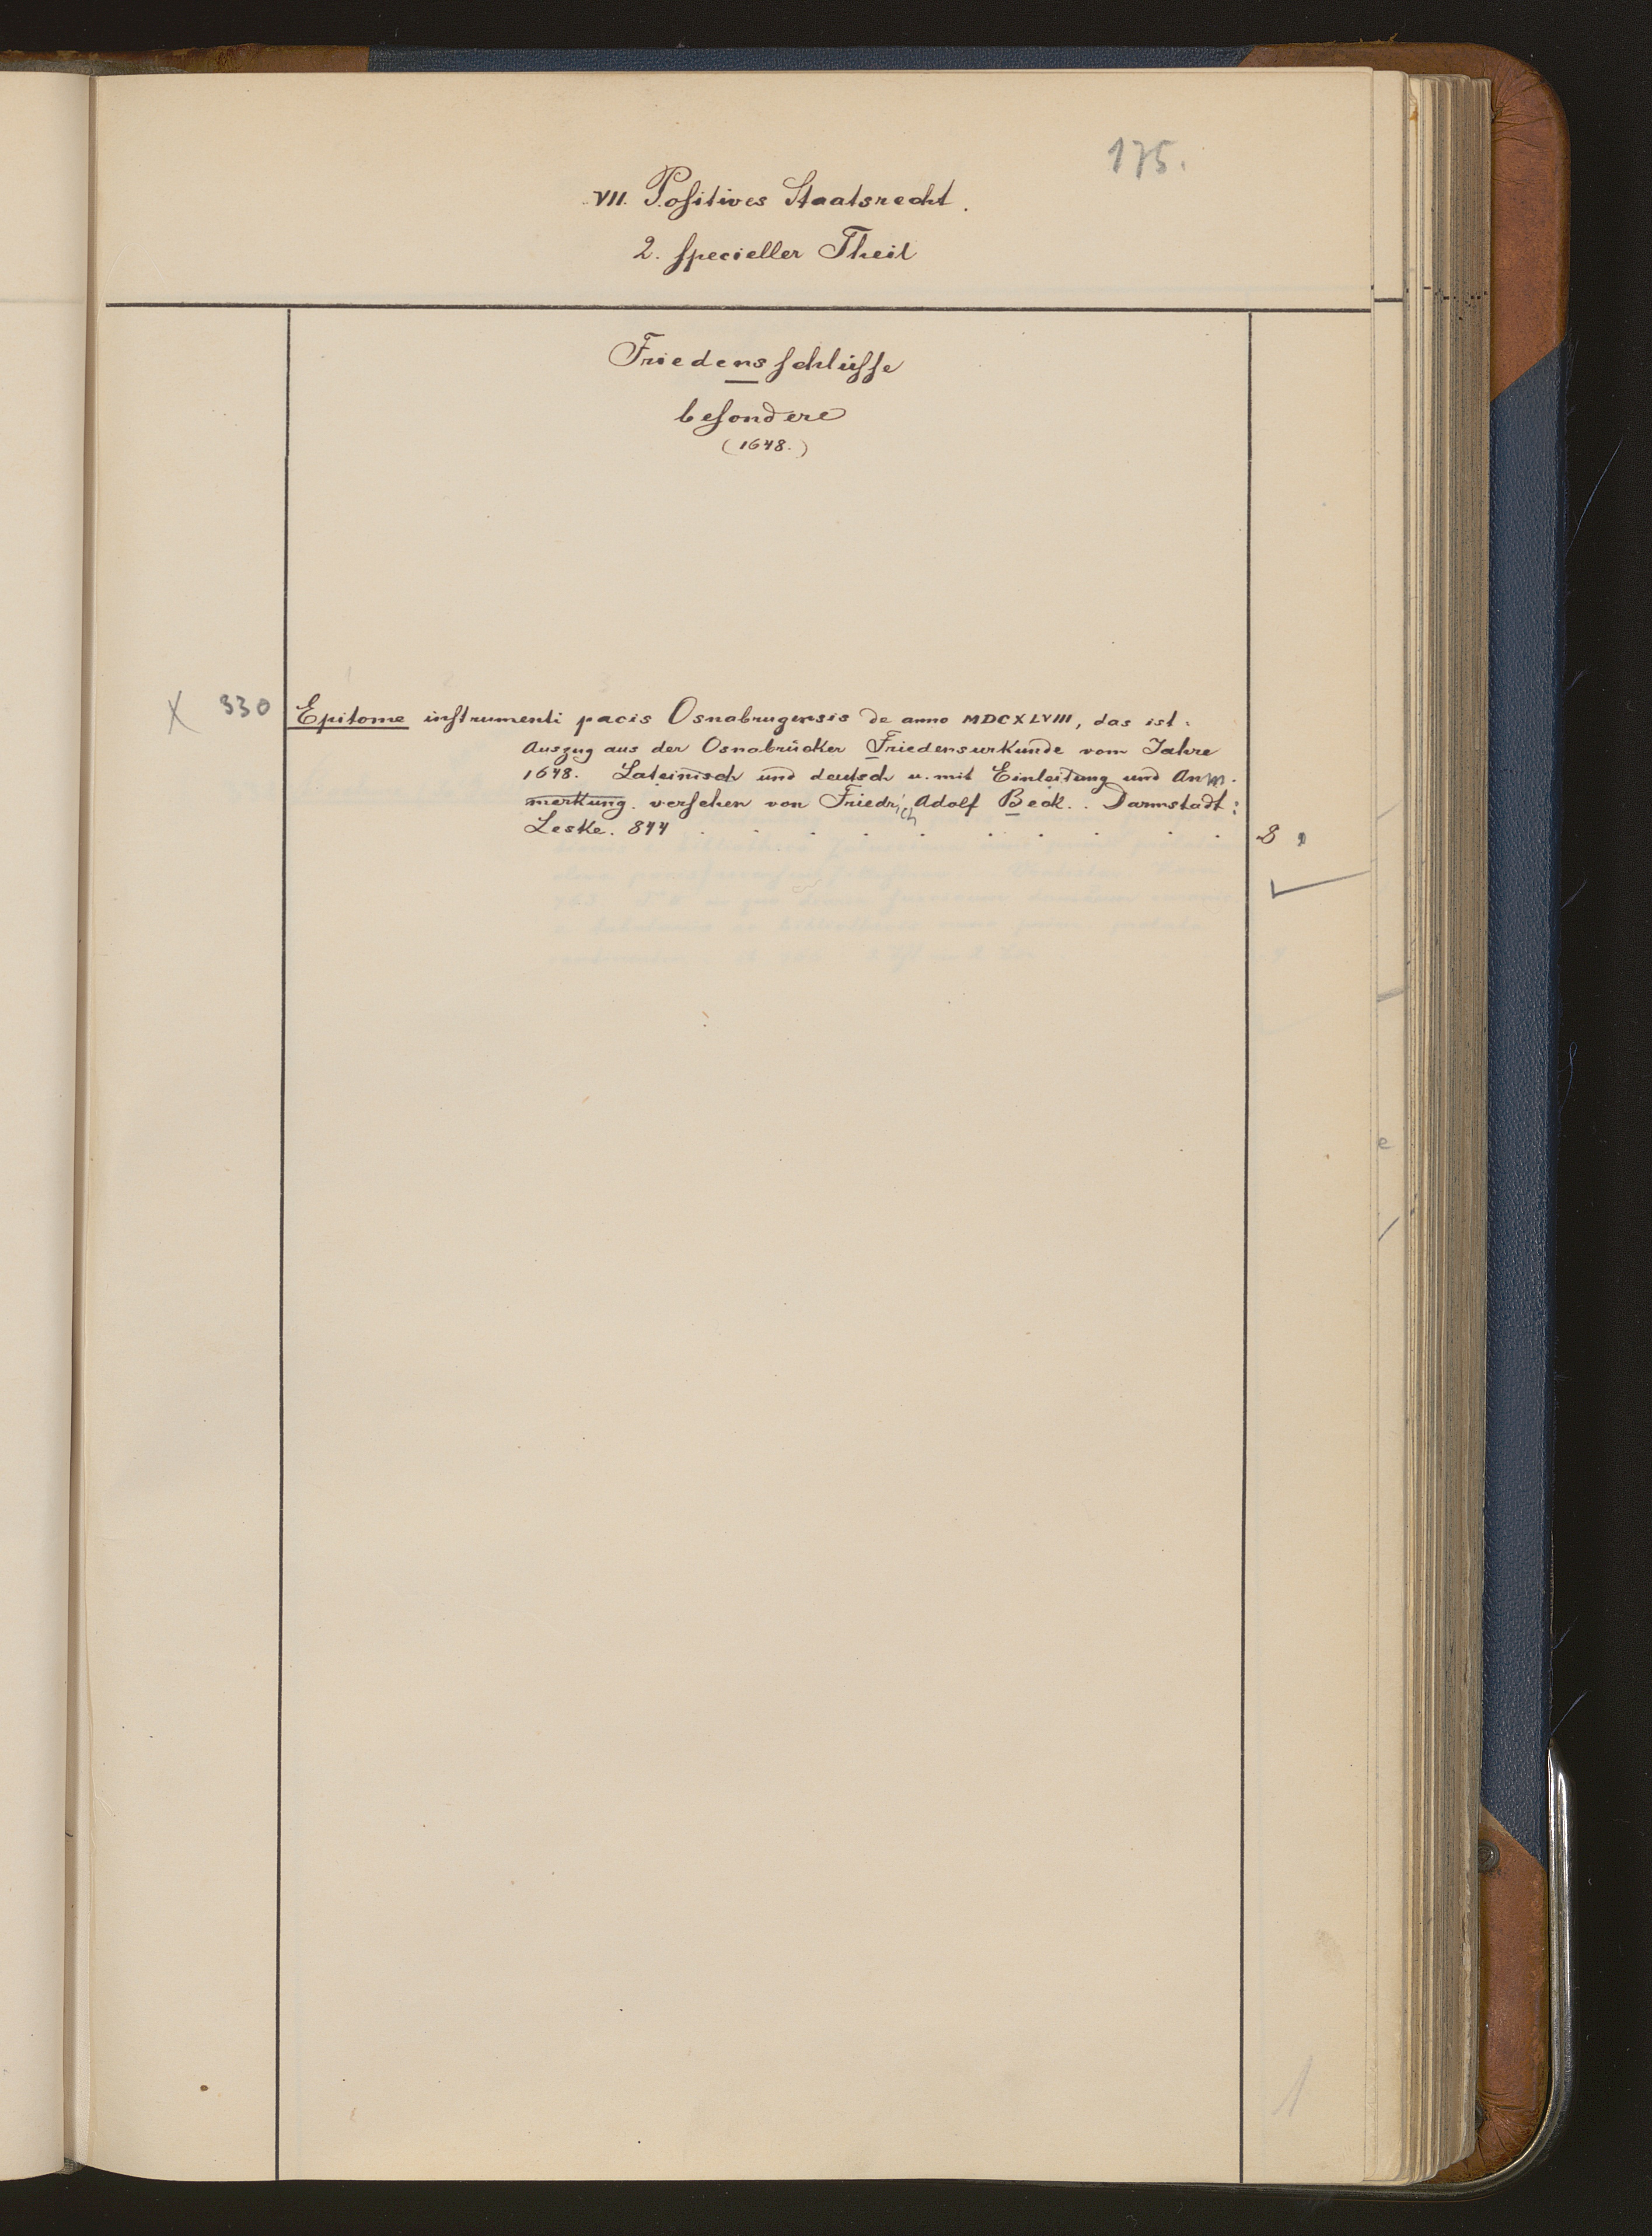 175.
VII. Positives Staatsrecht.
2. specieller Theil
Friedensschlüsse
besondere
(1648.)
X 330 Epitome instrumenti pacis Osnabrugensis de anno MDCXLVIII, das ist.
Auszug aus der Osnabrücker Friedensurkunde vom Jahre
1648. Lateinisch und deutsch u. mit Einleitung und Anm.
merkung. versehen von Friedrich Adolf Beck.. Darmstadt:
Leske. 844 . . . . . . . . . . 8
1